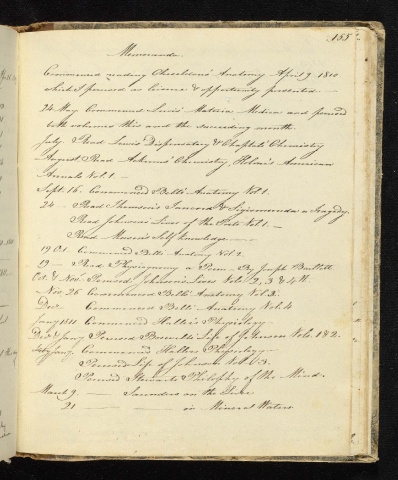 155
Memoranda
Commenced reading Cheselden's Anatomy April 9. 1810
which I perused as leisure & opportunity presented. —
24 May. Commenced Lewis' Materia Medica and perused
both volumes this and the succeeding month.
July. Read Lewis Dispensatory & Chaptal's Chemistry
August Read Chemistry, Holmes American
Annals Vol. 1. —
Sept. 16. Commenced Bell's Anatomy Vol 1.
24 — Read Thomson's Tancred & Sigismunda a Tragedy.
Read Johnson's Lives of the Poets Vol. 1. —
Read Mason's Self knowledge —
19 Oct. Commenced Bell's Anatomy Vol 2.
29 — Read Physiognomy a Poem — By Joseph Bartlett
Oct. & Nov. Perused Johnson's Lives Vols. 2, 3 & 4th
Nov. 26 Commenced Bell's Anatomy Vol. 3.
Dec. Commenced Bell's Anatomy Vol. 4
Jany 1811 Commenced Haller's Physiology
Dec. & Jany Perused Boswell's Life of Johnson Vols. 1 & 2.
Commenced Hallers Physiology —
Perused Life of Johnson Vol. 3.
Perused Stewarts Philosophy of the Mind.
March 9 — Saunders on the Liver
21 — — on Mineral Waters